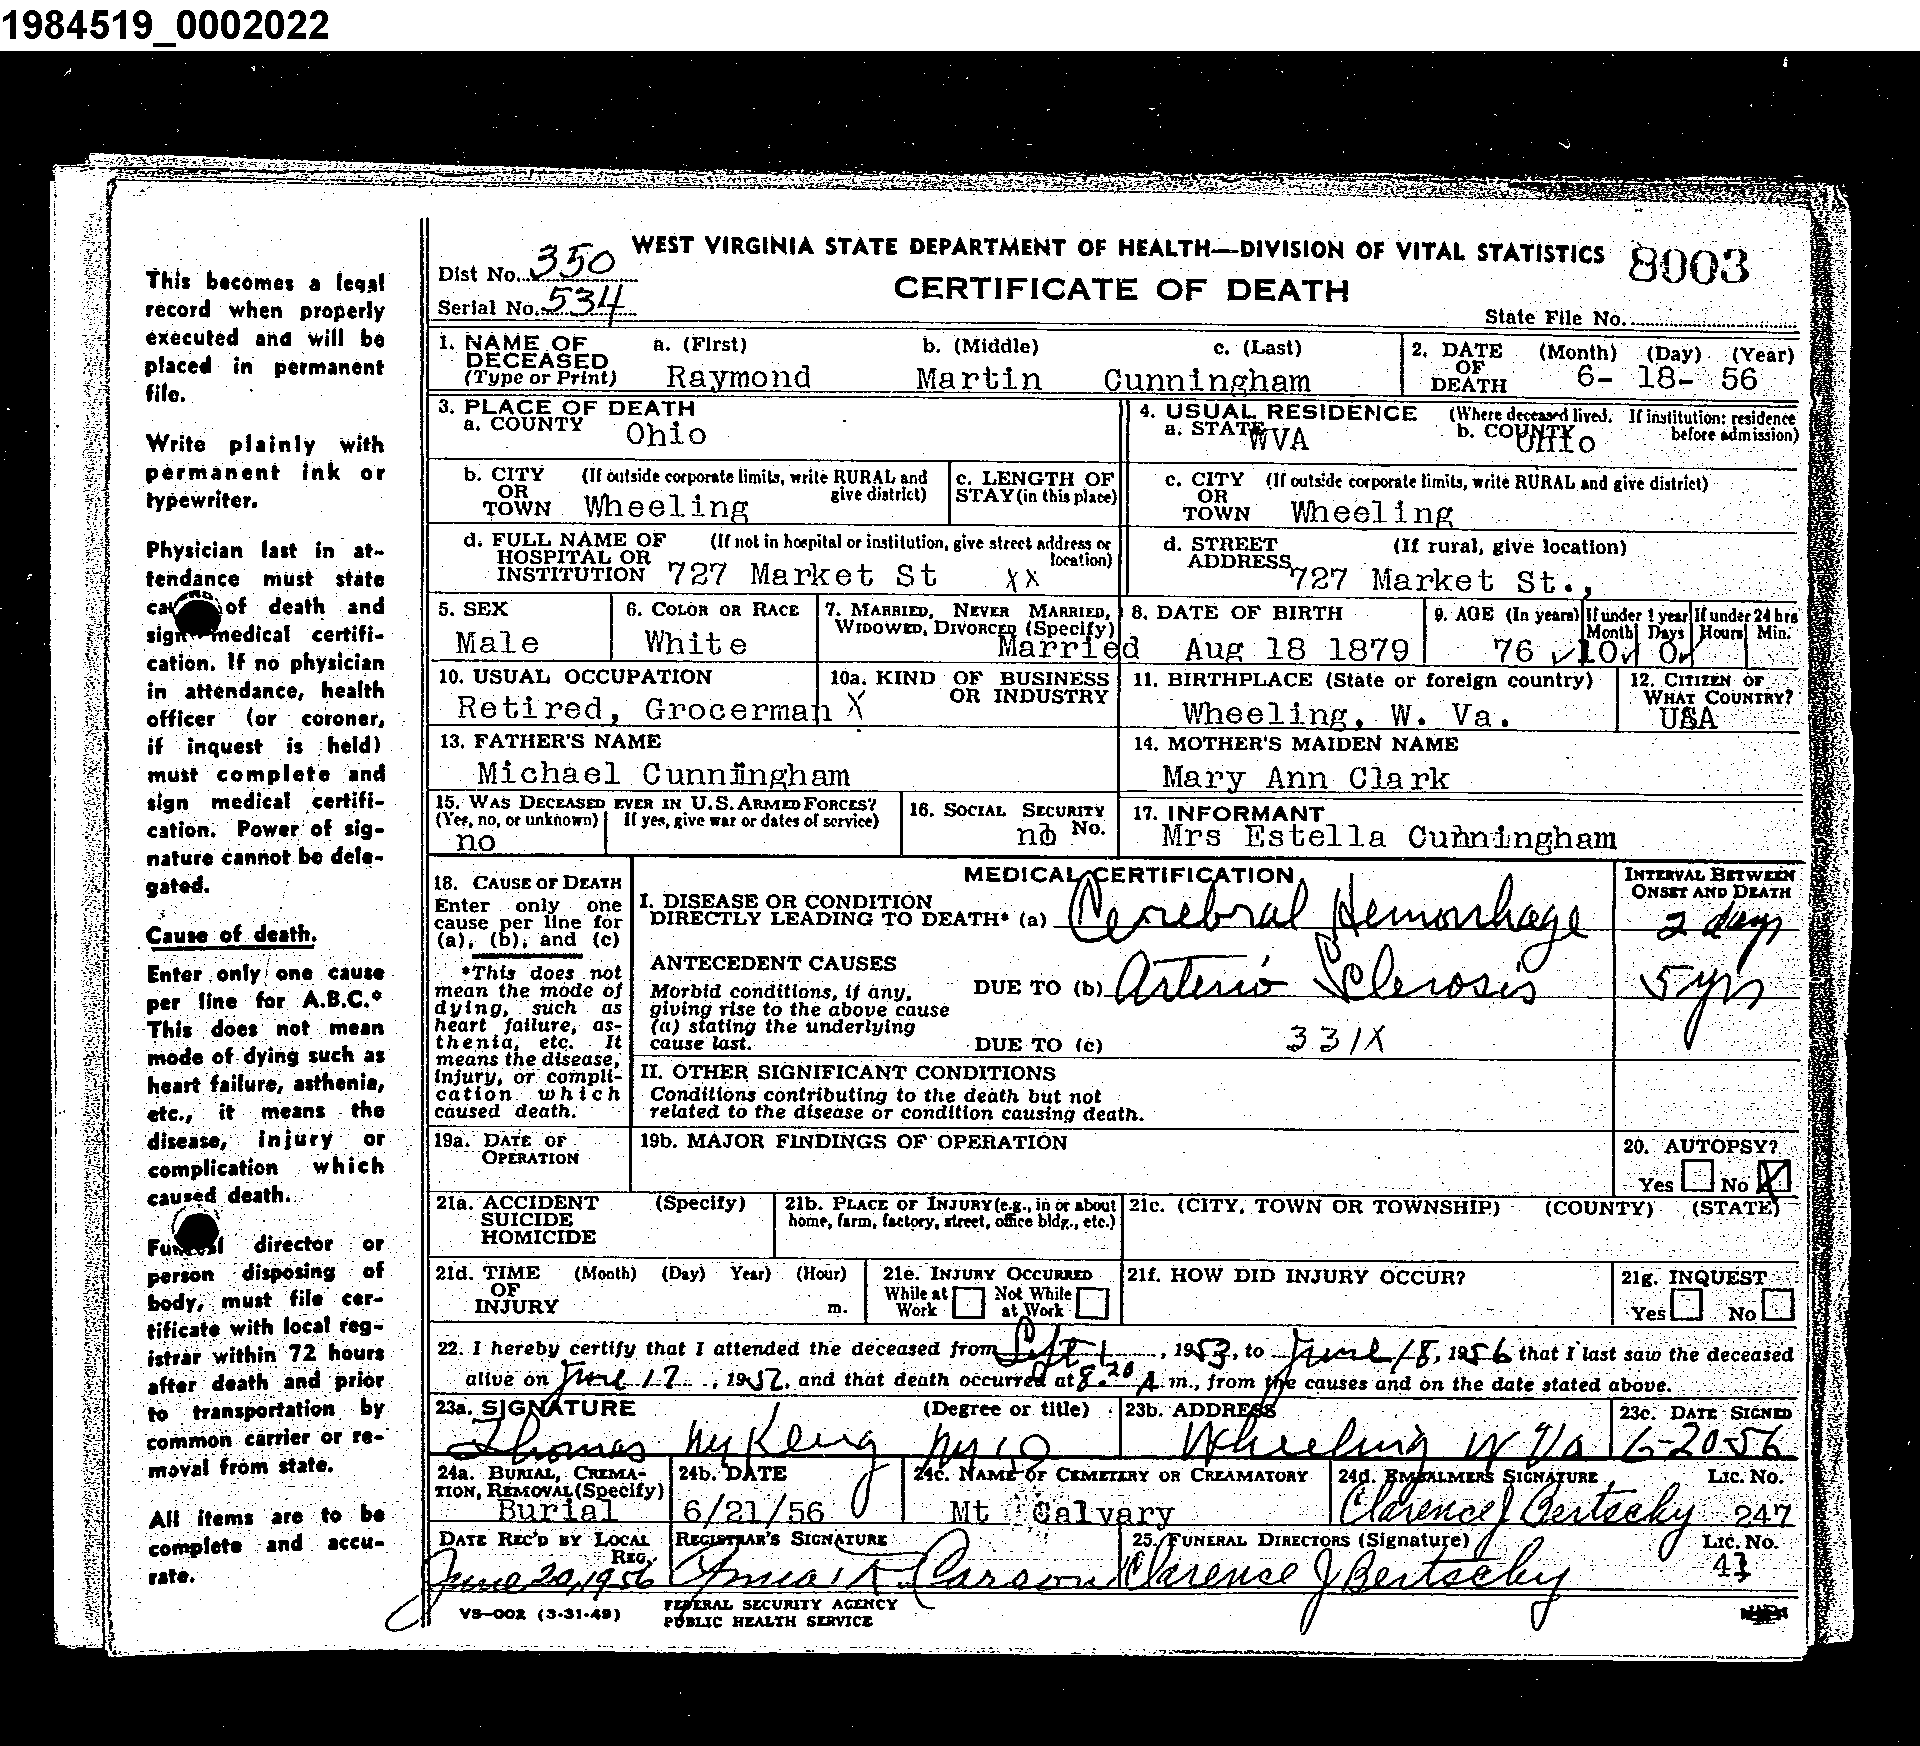 1984519_0002022
This becomes a legal
record when properly
executed and will be
placed in permanent
file.
Write plainly with
permanent ink or
typewriter.
Physician last in at-
tendance must state
of death and
medical certifi-
cation. If no physician
in attendance, health
officer (or coroner,
if inquest is held)
must complete and
sign medical certifi-
cation. Power of sig-
nature cannot be dele-
gated.
Cause of death.
Enter only one cause
per line for A.B.C.*
This does not mean
mode of dying such as
heart failure, asthenia,
etc., it means the
disease, injury or
complication which
caused death.
director or
person disposing of
body, must file cer-
tificate with local reg-
istrar within 72 hours
after death and prior
to transportation by
common carrier or re-
moval from state.
All items are to be
complete and accu-
rate.
WEST VIRGINIA STATE DEPARTMENT OF HEALTH—DIVISION OF VITAL STATISTICS 8003
Dist No. 350
CERTIFICATE OF DEATH
Serial No. 534
State File No.
1. NAME OF DECEASED (Type or Print) a. (First) b. (Middle) c. (Last)
Raymond Martin Cunningham
2. DATE OF DEATH (Month) (Day) (Year)
6- 18- 56
3. PLACE OF DEATH
a. COUNTY Ohio
4. USUAL RESIDENCE (Where deceased lived. If institution: residence before admission)
a. STATE WVA b. COUNTY Ohio
b. CITY OR TOWN (If outside corporate limits, write RURAL and give district)
Wheeling
c. LENGTH OF STAY (in this place)
c. CITY OR TOWN (If outside corporate limits, write RURAL and give district)
Wheeling
d. FULL NAME OF HOSPITAL OR INSTITUTION (If not in hospital or institution, give street address or location)
727 Market St XX
d. STREET ADDRESS (If rural, give location)
727 Market St.,
5. SEX
Male
6. COLOR OR RACE
White
7. MARRIED, NEVER MARRIED, WIDOWED, DIVORCED (Specify)
Married
8. DATE OF BIRTH
Aug 18 1879
9. AGE (In years) If under 1 year Month Days If under 24 hrs Hours Min.
76 10 0
10. USUAL OCCUPATION
Retired, Grocerman X
10a. KIND OF BUSINESS OR INDUSTRY
11. BIRTHPLACE (State or foreign country)
Wheeling, W. Va.
12. CITIZEN OF WHAT COUNTRY?
USA
13. FATHER'S NAME
Michael Cunningham
14. MOTHER'S MAIDEN NAME
Mary Ann Clark
15. WAS DECEASED EVER IN U.S. ARMED FORCES?
(Yes, no, or unknown) If yes, give war or dates of service)
no
16. SOCIAL SECURITY No.
no
17. INFORMANT
Mrs Estella Cunningham
18. CAUSE OF DEATH
Enter only one
cause per line for
(a), (b), and (c)
*This does not
mean the mode of
dying, such as
heart failure, as-
thenia, etc. It
means the disease,
injury, or compli-
cation which
caused death.
MEDICAL CERTIFICATION
I. DISEASE OR CONDITION
DIRECTLY LEADING TO DEATH* (a) Cerebral Hemorrhage
ANTECEDENT CAUSES
Morbid conditions, if any,
giving rise to the above cause
(a) stating the underlying
cause last.
DUE TO (b) Arterio Sclerosis
DUE TO (c) 331X
INTERVAL BETWEEN ONSET AND DEATH
2 days
5 yrs
II. OTHER SIGNIFICANT CONDITIONS
Conditions contributing to the death but not
related to the disease or condition causing death.
19a. DATE OF OPERATION
19b. MAJOR FINDINGS OF OPERATION
20. AUTOPSY?
Yes No X
21a. ACCIDENT SUICIDE HOMICIDE (Specify)
21b. PLACE OF INJURY (e.g., in or about home, farm, factory, street, office bldg., etc.)
21c. (CITY, TOWN OR TOWNSHIP) (COUNTY) (STATE)
21d. TIME OF INJURY (Month) (Day) Year) (Hour) m.
21e. INJURY OCCURRED
While at Work Not While at Work
21f. HOW DID INJURY OCCUR?
21g. INQUEST
Yes No
22. I hereby certify that I attended the deceased from Sept 1, 1953, to June 18, 1956 that I last saw the deceased
alive on June 17, 1957, and that death occurred at 8:20 A m., from the causes and on the date stated above.
23a. SIGNATURE (Degree or title)
Thomas
23b. ADDRESS
Wheeling W Va
23c. DATE SIGNED
6-20-56
24a. BURIAL, CREMA-
TION, REMOVAL (Specify)
Burial
24b. DATE
6/21/56
24c. NAME OF CEMETERY OR CREAMATORY
Mt Calvary
24d. EMBALMERS SIGNATURE Lic. No.
Clarence J Bertschy 247
DATE REC'D BY LOCAL REG.
June 20, 1956
REGISTRAR'S SIGNATURE
Carson
25. FUNERAL DIRECTORS (Signature) Lic. No.
Clarence J Bertschy
VS-002 (3-31-49)
FEDERAL SECURITY AGENCY
PUBLIC HEALTH SERVICE